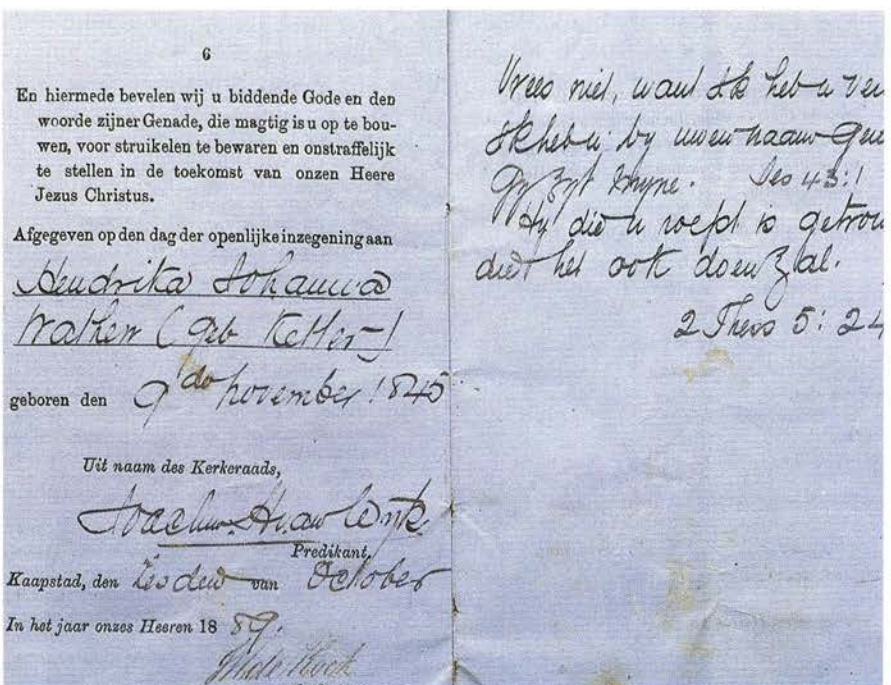 6
En hiermede bevelen wij u biddende Gode en den
woorde zijner Genade, die magtig is u op te bou-
wen, voor struikelen te bewaren en onstraffelijk
te stellen in de toekomst van onzen Heere
Jezus Christus.
Afgegeven op den dag der openlijke inzegening aan
Hendrika Johanna
(geb Keller)
geboren den 9de november 1845
Uit naam des Kerkeraads,
Predikant,
Kaapstad, den Zesden van October
In het jaar onzes Heeren 18 89.
Vrees niet, want Ik heb u ver
Ik heb u by uwen naam gene
Gy zyt myne. Jes 43:1
Hy die u roept is getrou
die het ook doen zal.
2 Thess 5:24